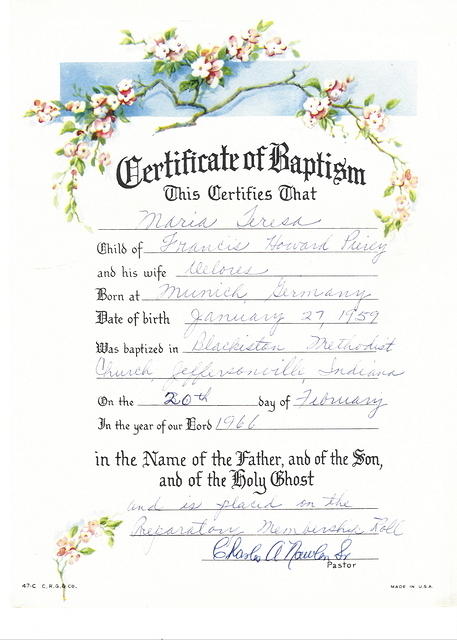 Certificate of Baptism
This Certifies That
Maria Teresa
Child of Francis Howard Piercy
and his wife Delores
Born at Munich, Germany
Date of birth January 27, 1959
Was baptized in Blackiston Methodist
Church, Jeffersonville, Indiana
On the 20th day of February
In the year of our Lord 1966
in the Name of the Father, and of the Son,
and of the Holy Ghost
and is placed on the
Preparatory Membership Roll
Charles A Nowlen Sr
Pastor
47-C C.R.G.& CO.
MADE IN U.S.A.